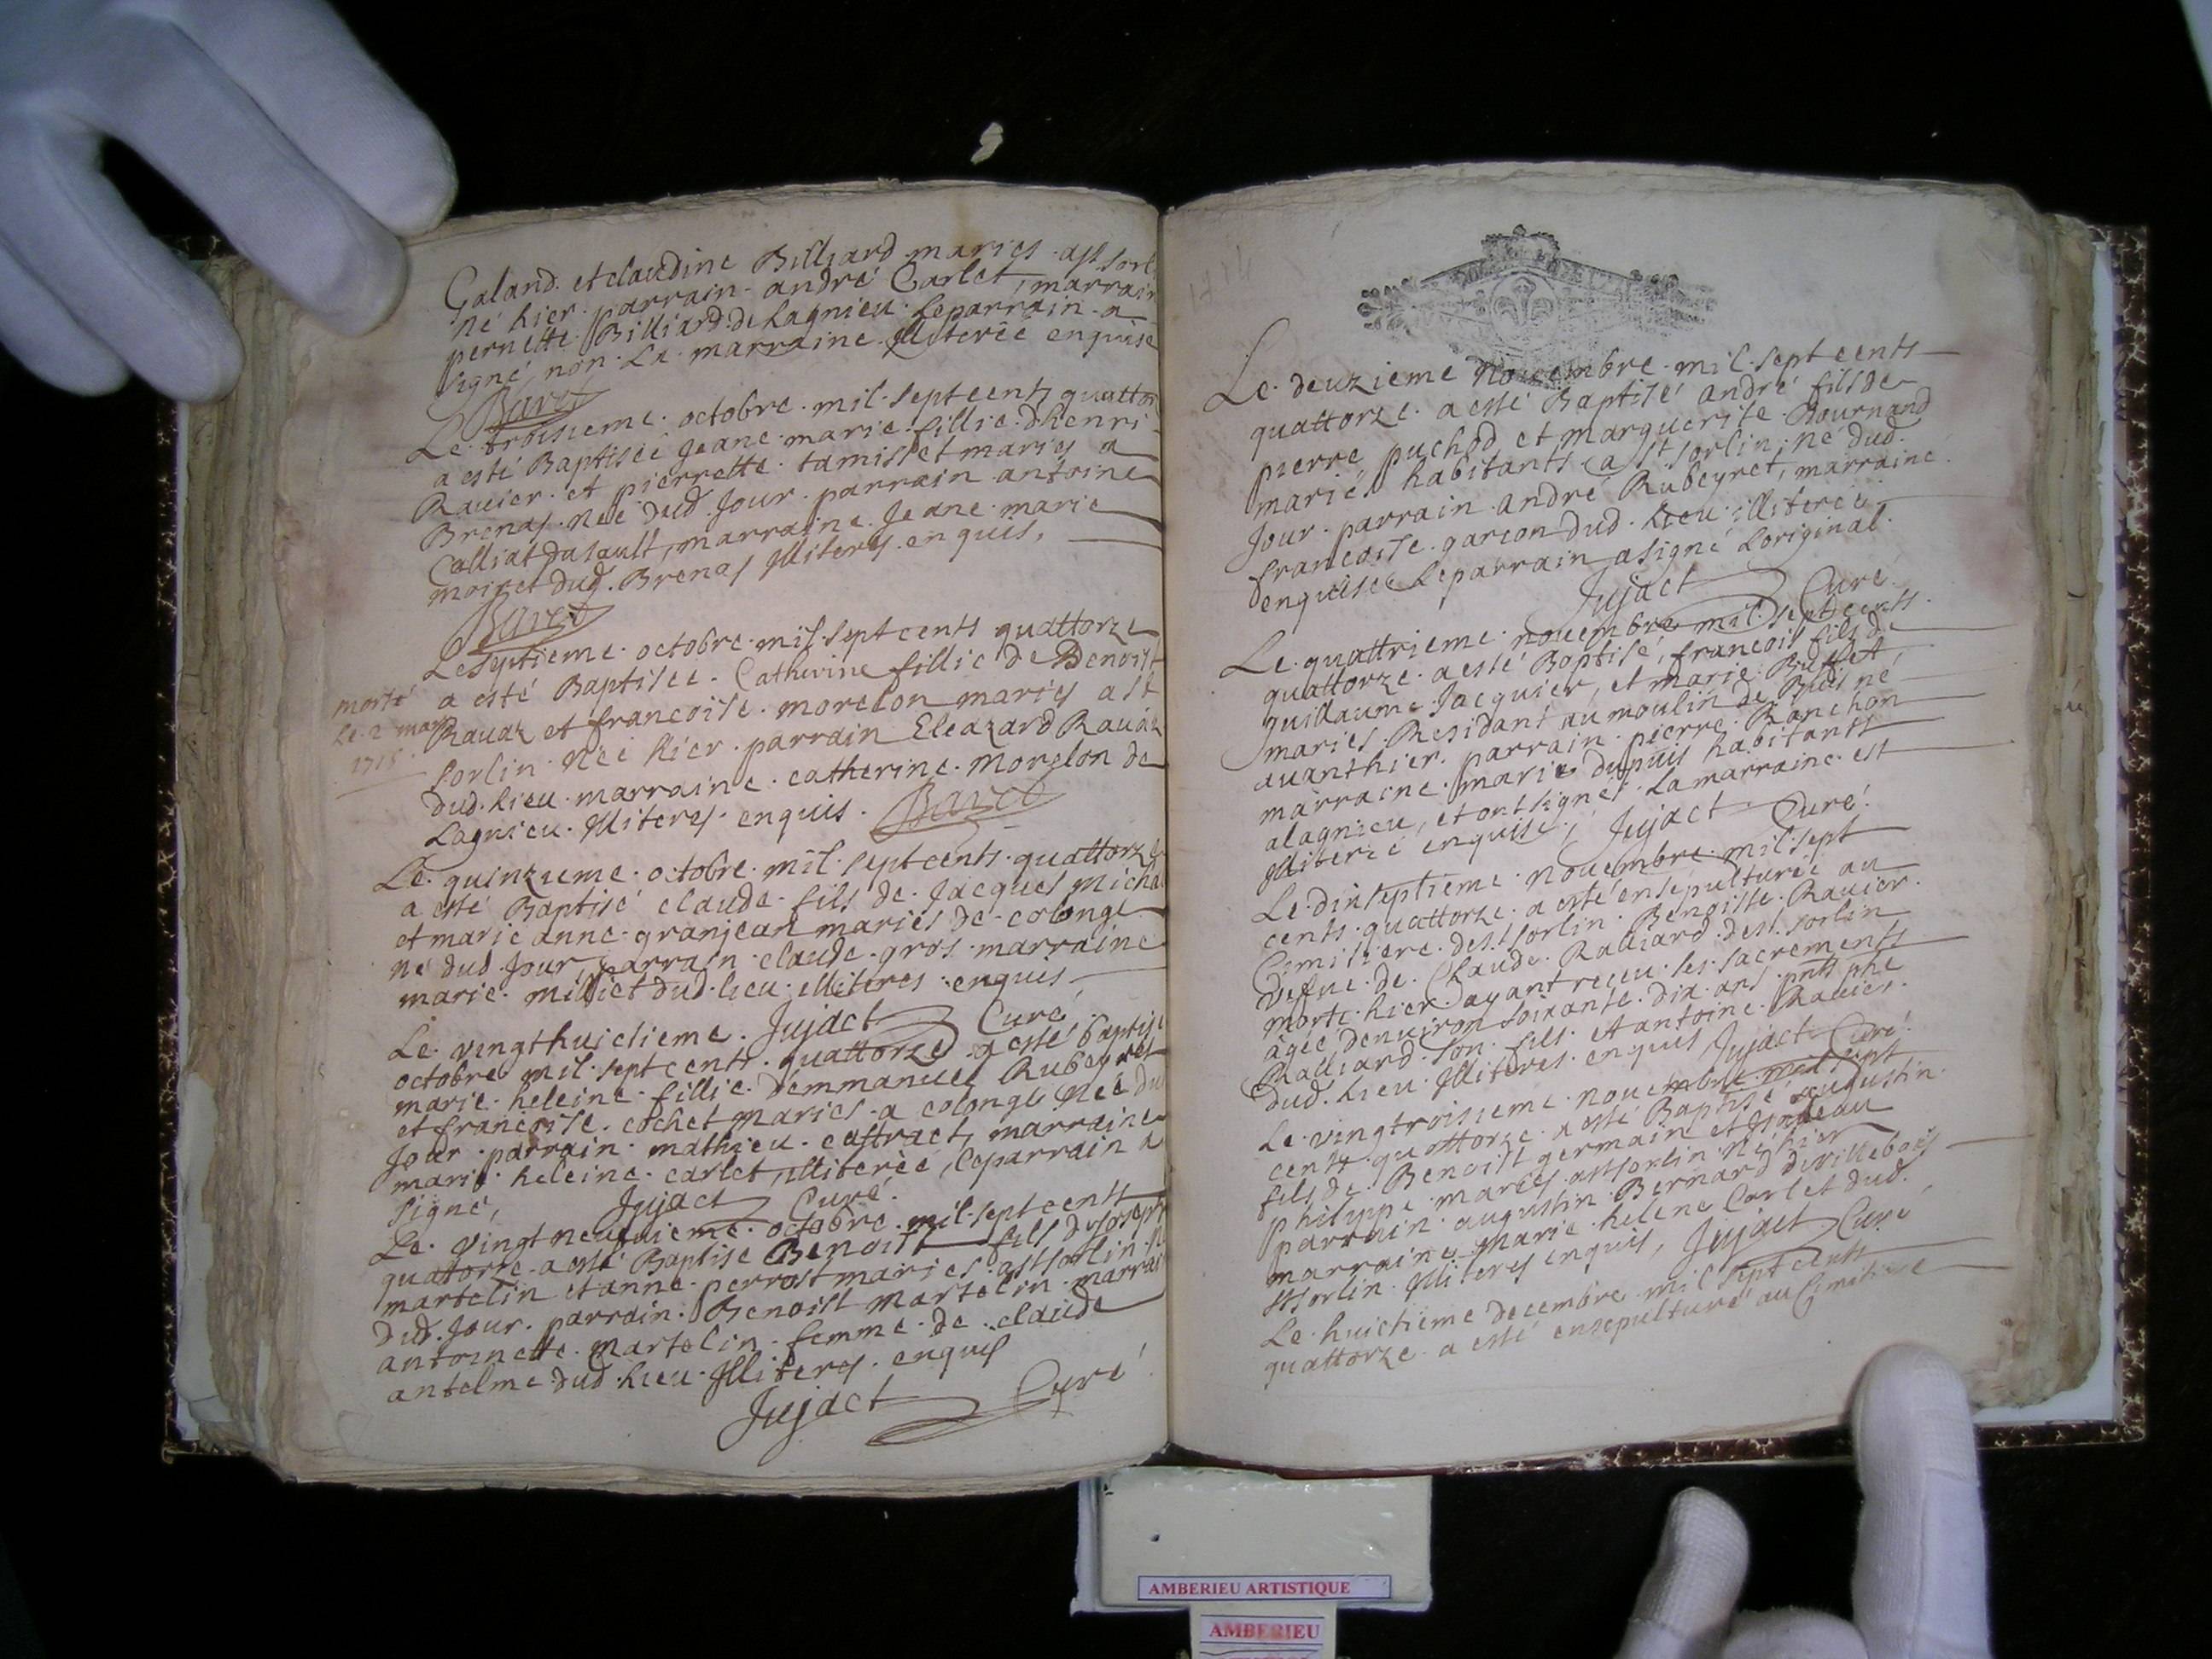 Galand. et claudine Billiard maries ast sorl
né hier. parrain. andré Carlet, marrain
pernette Billiard de Lagnieu Le parrain a
signé, non La marraine Illiterée enquise
Barco
Le troisieme octobre mil sept cents quattor
a esté Baptisée Jeane marie fillie dhenri
Ravier et pierrette tamisset maries a
Brenas née dud Jour parrain antoine
Calliat Dusault, marraine Jeane marie
dud. Brenas Illiteres enquis,
Barco
Le septieme octobre mil sept cents quattorze
a esté Baptisée Catherine fillie de Benoist
Ravaz et francoise morelon maries a st
sorlin née hier parrain Eleazard Ravaz
dud. Lieu marraine catherine morelon de
Lagnieu Illiteres enquis. Barco
morte
Le 2 may
1715
Le quinzieme octobre mil sept cents quattorze
a esté Baptisé claude fils de Jacques micha
et marie anne granjean maries de colonge
né dud Jour parrain claude gros marraine
marie milliet dud. lieu illiteres enquis
Jujact Curé
Le vingt huictieme
octobre mil sept cents quattorze a esté baptise
marie heleine fillie demmanuel Rubeyret
et francoise cochet maries a colonge née du
Jour parrain mathieu castract, marraine
marie heleine carlet, illiterée, le parrain a
signé, Jujact Curé.
Le vingt neufvieme octobre mil sept cents
quattorze a esté Baptise Benoist fils de Joseph
martelin et anne perrost maries ast sorlin
dud. Jour. parrain Benoist martelin marrai
antoinette martelin femme de claude
antelme dud lieu Illiteres enquis
Jujact Curé
1714
Le deuzieme novembre mil sept cents
quattorze a esté Baptisé andré fils de
pierre puchod et marguerite Dournand
mariés habitants a st sorlin né dud.
Jour parrain andré Rubeyret, marraine
francoise garcon dud. Lieu illiterée
enquise Le parrain a signé Loriginal.
Jujact Curé
Le quattrieme novembre mil sept cents
quattorze a esté Baptisé, francois fils de
guillaume Jacquier, et marie Buffet
maries Residant au moulin de Buis né
avanthier. parrain pierre Ranchon
marraine marie dupuis habitants
a lagnieu, et ont signés La marraine est
Illiterée enquise, Jujact Curé
Le dixseptieme novembre mil sept
cents quattorze a esté ensepulturée au
Cimitiere de st sorlin Benoiste Ravier
vefue de Claude Ralliard de st sorlin
morte hier ayant receu les sacrements
agée denviron soixante dix ans pnts phe
Ralliard son fils et antoine Ravier
dud. lieu Illiteres enquis Jujact Curé
Le vingtroisieme novembre mil sept
cents quattorze a esté Baptisé augustin
fils de Benoist germain et Isabeau
philippe maries ast sorlin né hier
parrain augustin Bernard de villebois
marraine marie helene Carlet dud.
st sorlin Illiteres enquis, Jujact Curé
Le huictieme decembre mil sept cents
quattorze a esté ensepulturé au Cimitiere
AMBERIEU ARTISTIQUE
AMBERIEU